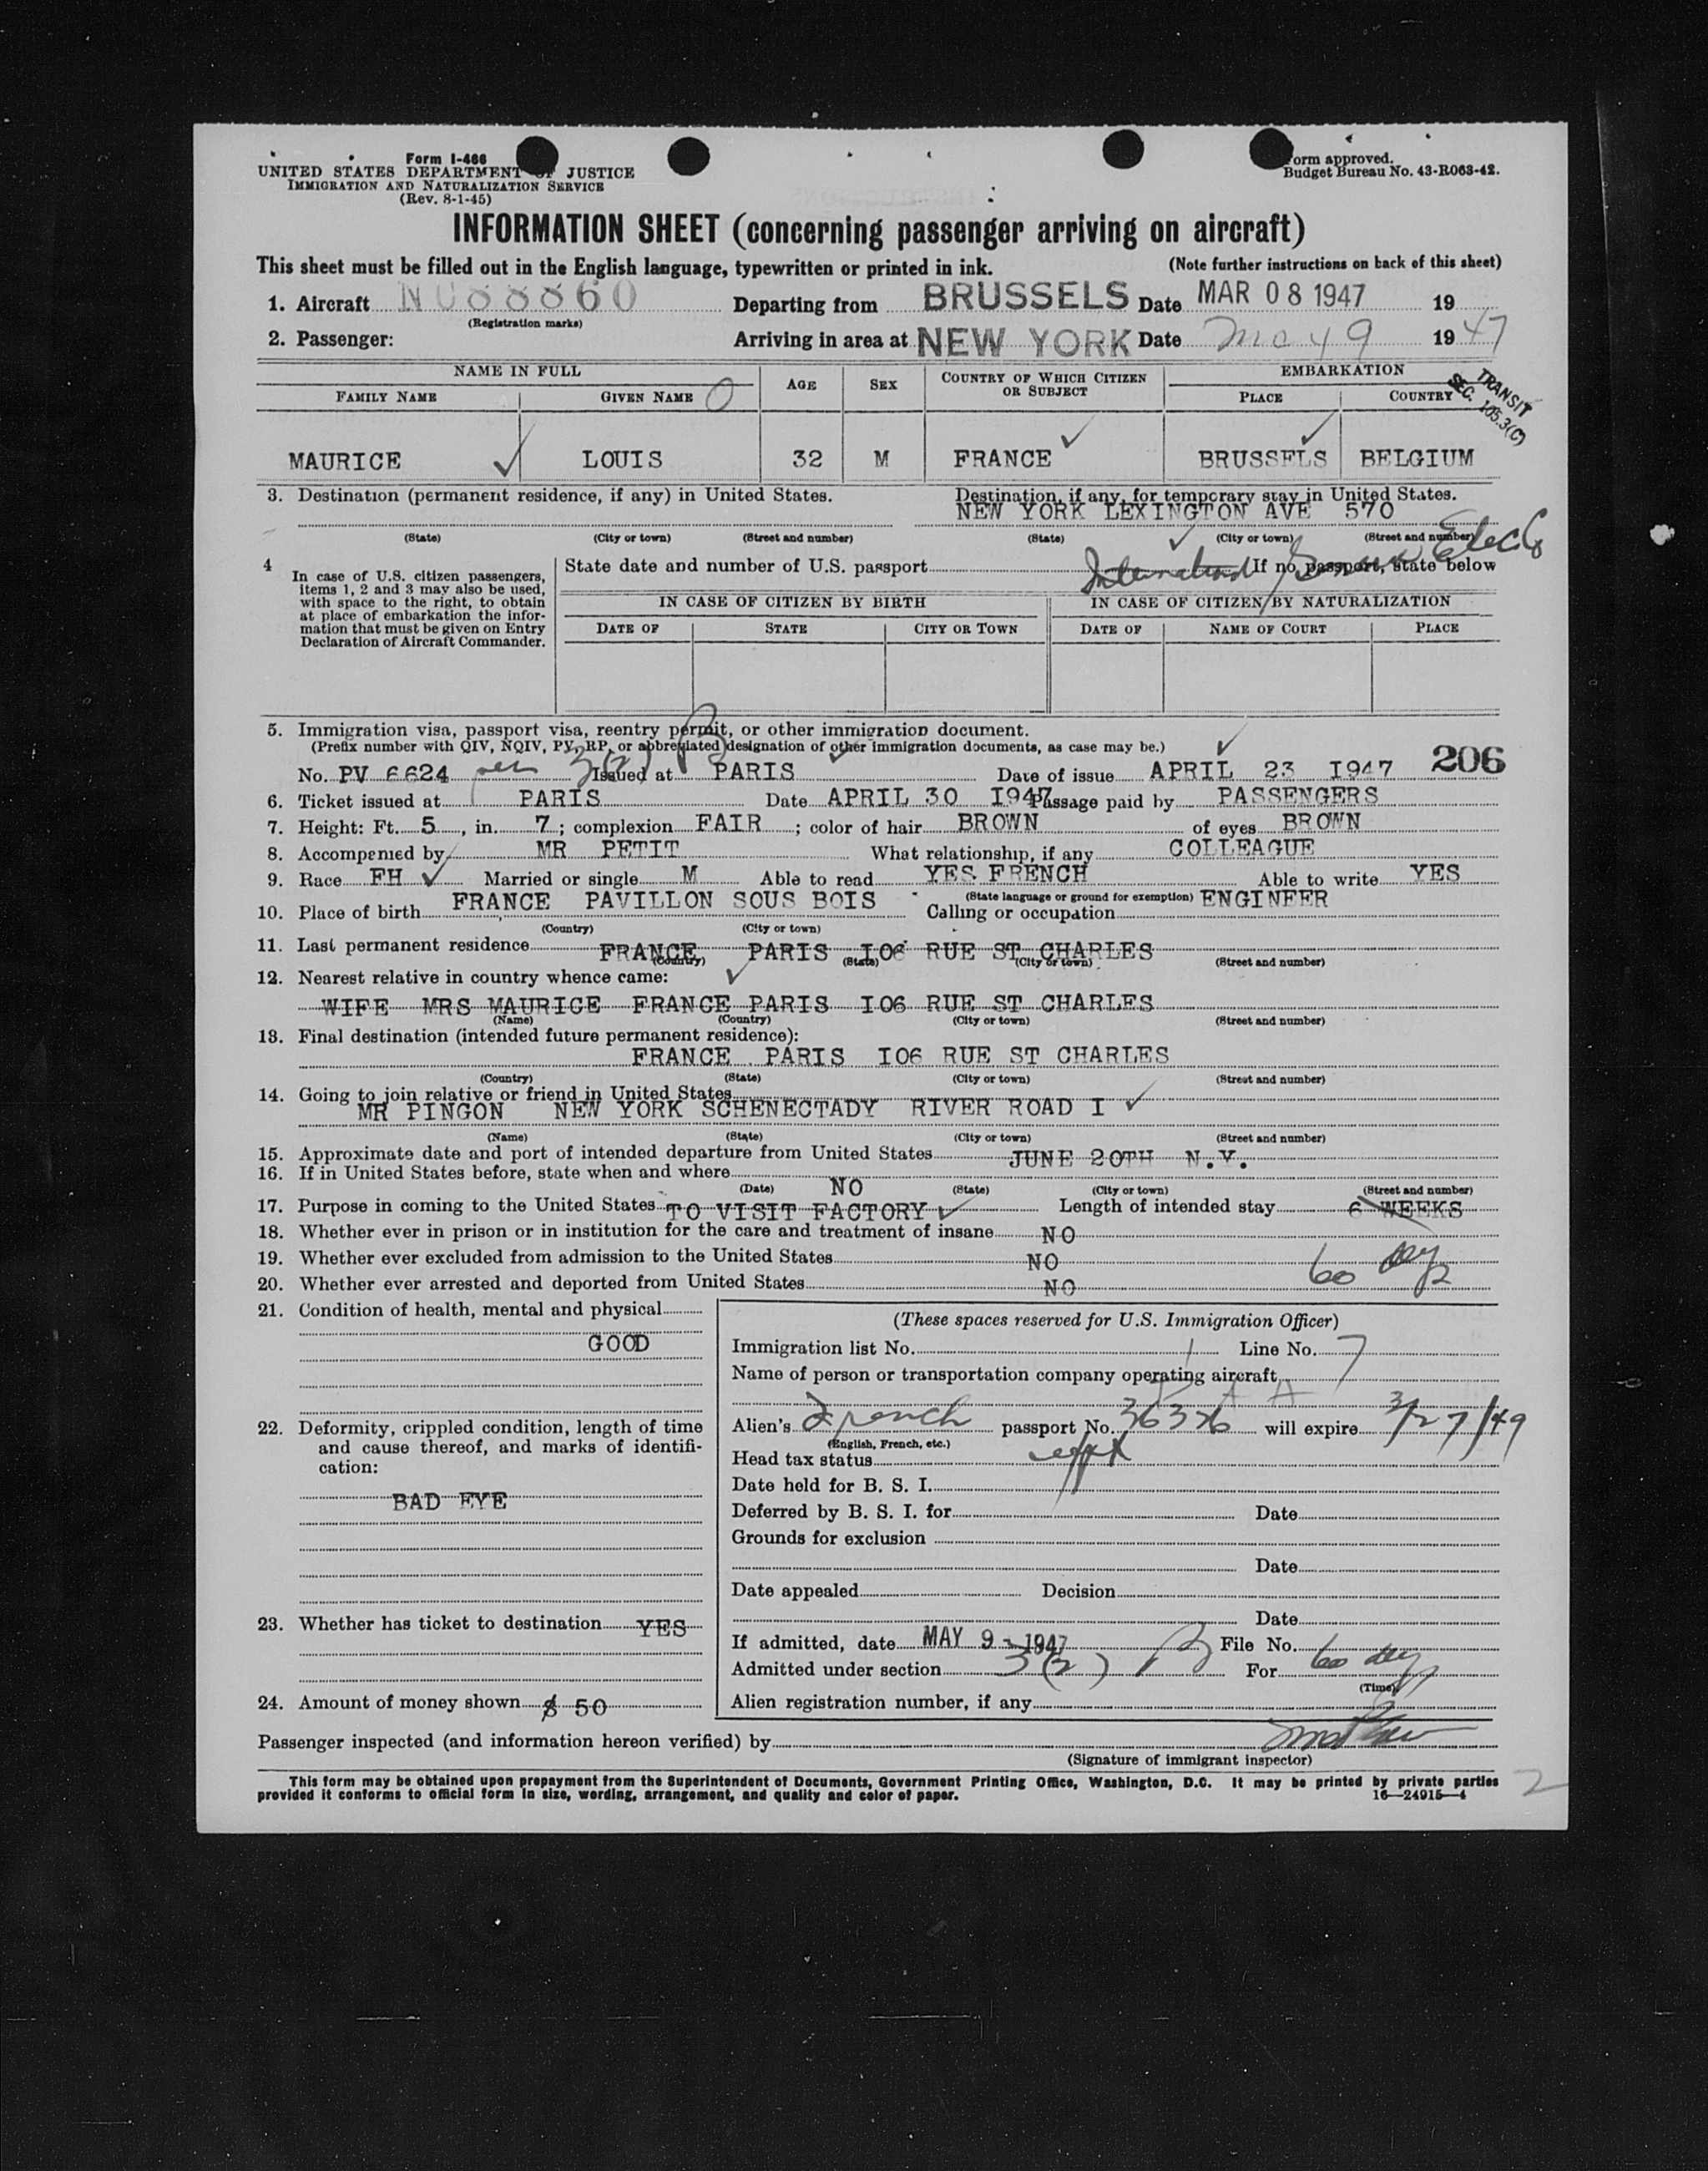 Form I-466
UNITED STATES DEPARTMENT OF JUSTICE
IMMIGRATION AND NATURALIZATION SERVICE
(Rev. 8-1-45)
Form approved.
Budget Bureau No. 43-R063-42.
INFORMATION SHEET (concerning passenger arriving on aircraft)
This sheet must be filled out in the English language, typewritten or printed in ink. (Note further instructions on back of this sheet)
1. Aircraft NC88860 Departing from BRUSSELS Date MAR 08 1947 19
(Registration marks)
2. Passenger: Arriving in area at NEW YORK Date May 9 1947
NAME IN FULL AGE SEX COUNTRY OF WHICH CITIZEN OR SUBJECT EMBARKATION
FAMILY NAME GIVEN NAME PLACE COUNTRY
TRANSIT
SEC. 105.3(C)
MAURICE LOUIS 32 M FRANCE BRUSSELS BELGIUM
3. Destination (permanent residence, if any) in United States. Destination, if any, for temporary stay in United States.
NEW YORK LEXINGTON AVE 570
(State) (City or town) (Street and number) (State) (City or town) (Street and number)
International General Elec Co
4 In case of U.S. citizen passengers, items 1, 2 and 3 may also be used, with space to the right, to obtain at place of embarkation the information that must be given on Entry Declaration of Aircraft Commander.
State date and number of U.S. passport If no passport, state below
IN CASE OF CITIZEN BY BIRTH IN CASE OF CITIZEN BY NATURALIZATION
DATE OF STATE CITY OR TOWN DATE OF NAME OF COURT PLACE
5. Immigration visa, passport visa, reentry permit, or other immigration document.
(Prefix number with QIV, NQIV, PV, RP, or abbreviated designation of other immigration documents, as case may be.)
No. PV 6624 3(2) Issued at PARIS Date of issue APRIL 23 I947 206
6. Ticket issued at PARIS Date APRIL 30 I947 Passage paid by PASSENGERS
7. Height: Ft. 5, in. 7; complexion FAIR; color of hair BROWN of eyes BROWN
8. Accompenied by MR PETIT What relationship, if any COLLEAGUE
9. Race FH Married or single M Able to read YES FRENCH Able to write YES
(State language or ground for exemption)
10. Place of birth FRANCE PAVILLON SOUS BOIS Calling or occupation ENGINEER
(Country) (City or town)
11. Last permanent residence FRANCE PARIS I06 RUE ST CHARLES
(Country) (State) (City or town) (Street and number)
12. Nearest relative in country whence came:
WIFE MRS MAURICE FRANCE PARIS I06 RUE ST CHARLES
(Name) (Country) (City or town) (Street and number)
13. Final destination (intended future permanent residence):
FRANCE PARIS I06 RUE ST CHARLES
(Country) (State) (City or town) (Street and number)
14. Going to join relative or friend in United States
MR PINGON NEW YORK SCHENECTADY RIVER ROAD I
(Name) (State) (City or town) (Street and number)
15. Approximate date and port of intended departure from United States JUNE 20TH N.Y.
16. If in United States before, state when and where NO
(Date) (State) (City or town) (Street and number)
17. Purpose in coming to the United States TO VISIT FACTORY Length of intended stay 6 WEEKS
18. Whether ever in prison or in institution for the care and treatment of insane NO
19. Whether ever excluded from admission to the United States NO
60 days
20. Whether ever arrested and deported from United States NO
21. Condition of health, mental and physical
GOOD
22. Deformity, crippled condition, length of time and cause thereof, and marks of identification:
BAD EYE
23. Whether has ticket to destination YES
24. Amount of money shown $ 50
(These spaces reserved for U.S. Immigration Officer)
Immigration list No. 1 Line No. 7
Name of person or transportation company operating aircraft
P A A
Alien's French passport No. 36376 will expire 3/27/49
(English, French, etc.)
Head tax status
Date held for B. S. I.
Deferred by B. S. I. for Date
Grounds for exclusion
Date
Date appealed Decision
Date
If admitted, date MAY 9 - 1947 File No.
Admitted under section 3(2) For 60 days
(Time)
Alien registration number, if any
Passenger inspected (and information hereon verified) by
(Signature of immigrant inspector)
This form may be obtained upon prepayment from the Superintendent of Documents, Government Printing Office, Washington, D.C. It may be printed by private parties
provided it conforms to official form in size, wording, arrangement, and quality and color of paper. 16—24915-4
2